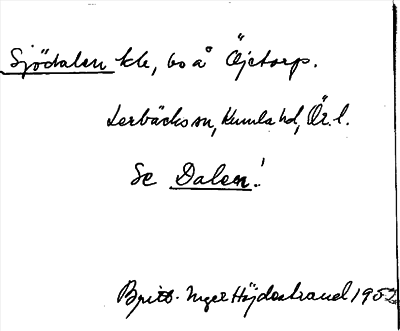 Sjödalen kle, bo å Öjetorp.
Lerbäcks sn, Kumla hd, Ör. l.
Se Dalen!
Britt-Inger Höjdestrand 1952